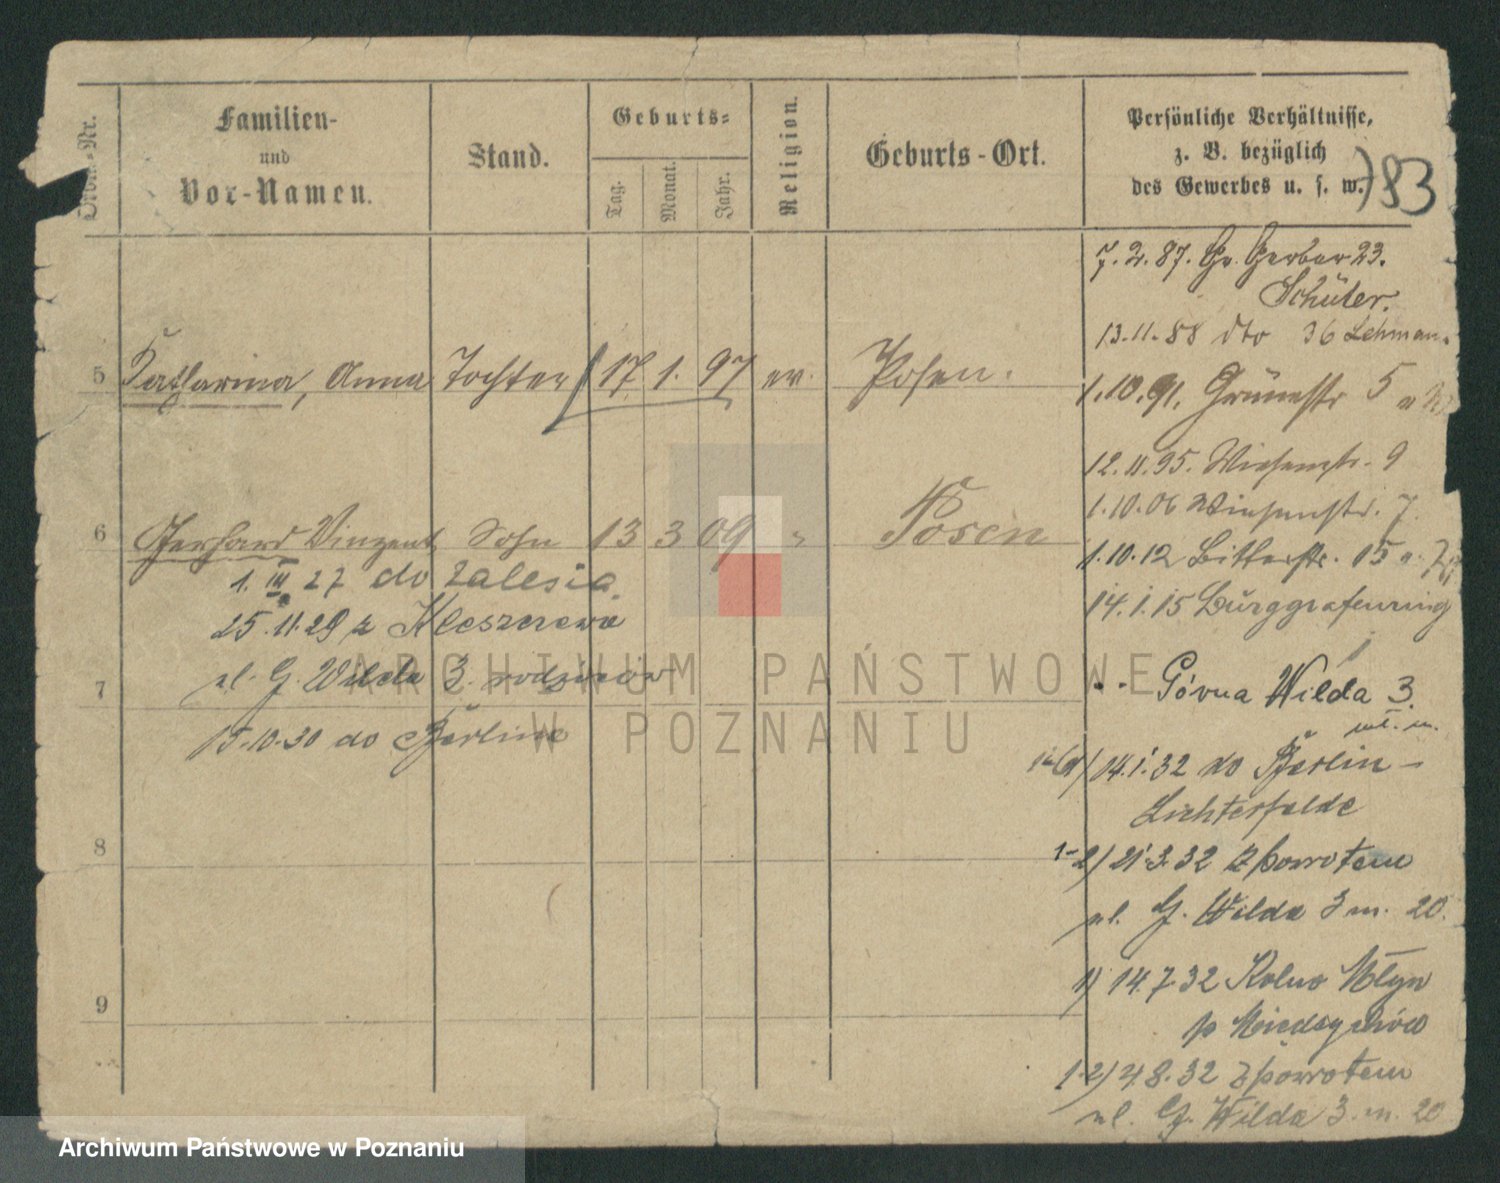 Ordn.-Nr.
Familien-
und
Vor-Namen.
Stand.
Geburts-
Tag.
Monat.
Jahr.
Religion.
Geburts-Ort.
Persönliche Verhältnisse,
z. B. bezüglich
des Gewerbes u. s. w.
783
5 Katharina, Anna Tochter 17 1. 97 ev. Posen.
6 Gerhard Vinzent Sohn 13 3 09 " Posen
1. III 27 do Zalesia
25.11.29 z Kleszczewa
ul. G. Wilda 3. rodziców
7
15.10.30 do Berlina
8
9
7.2.87. Gr. Gerber 23.
Schüler.
13.11.88 dto 36 Lehman.
1.10.91. Grünestr 5
12.11.95. Wiesenstr. 9
1.10.06 Wiesenstr. 7
1.10.12 Bitterstr. 15
14.1.15 Burggrafenring
Górna Wilda 3.
14.1.32 do Berlin-
Lichterfelde
1-2) 21.3.32 z powrotem
ul. G. Wilda 3 m. 20.
1) 14.7.32 Kolno Młyn
p Międzychód
1-2) 4 8.32 z powrotem
ul. G. Wilda 3. m. 20
ARCHIWUM PAŃSTWOWE
W POZNANIU
Archiwum Państwowe w Poznaniu